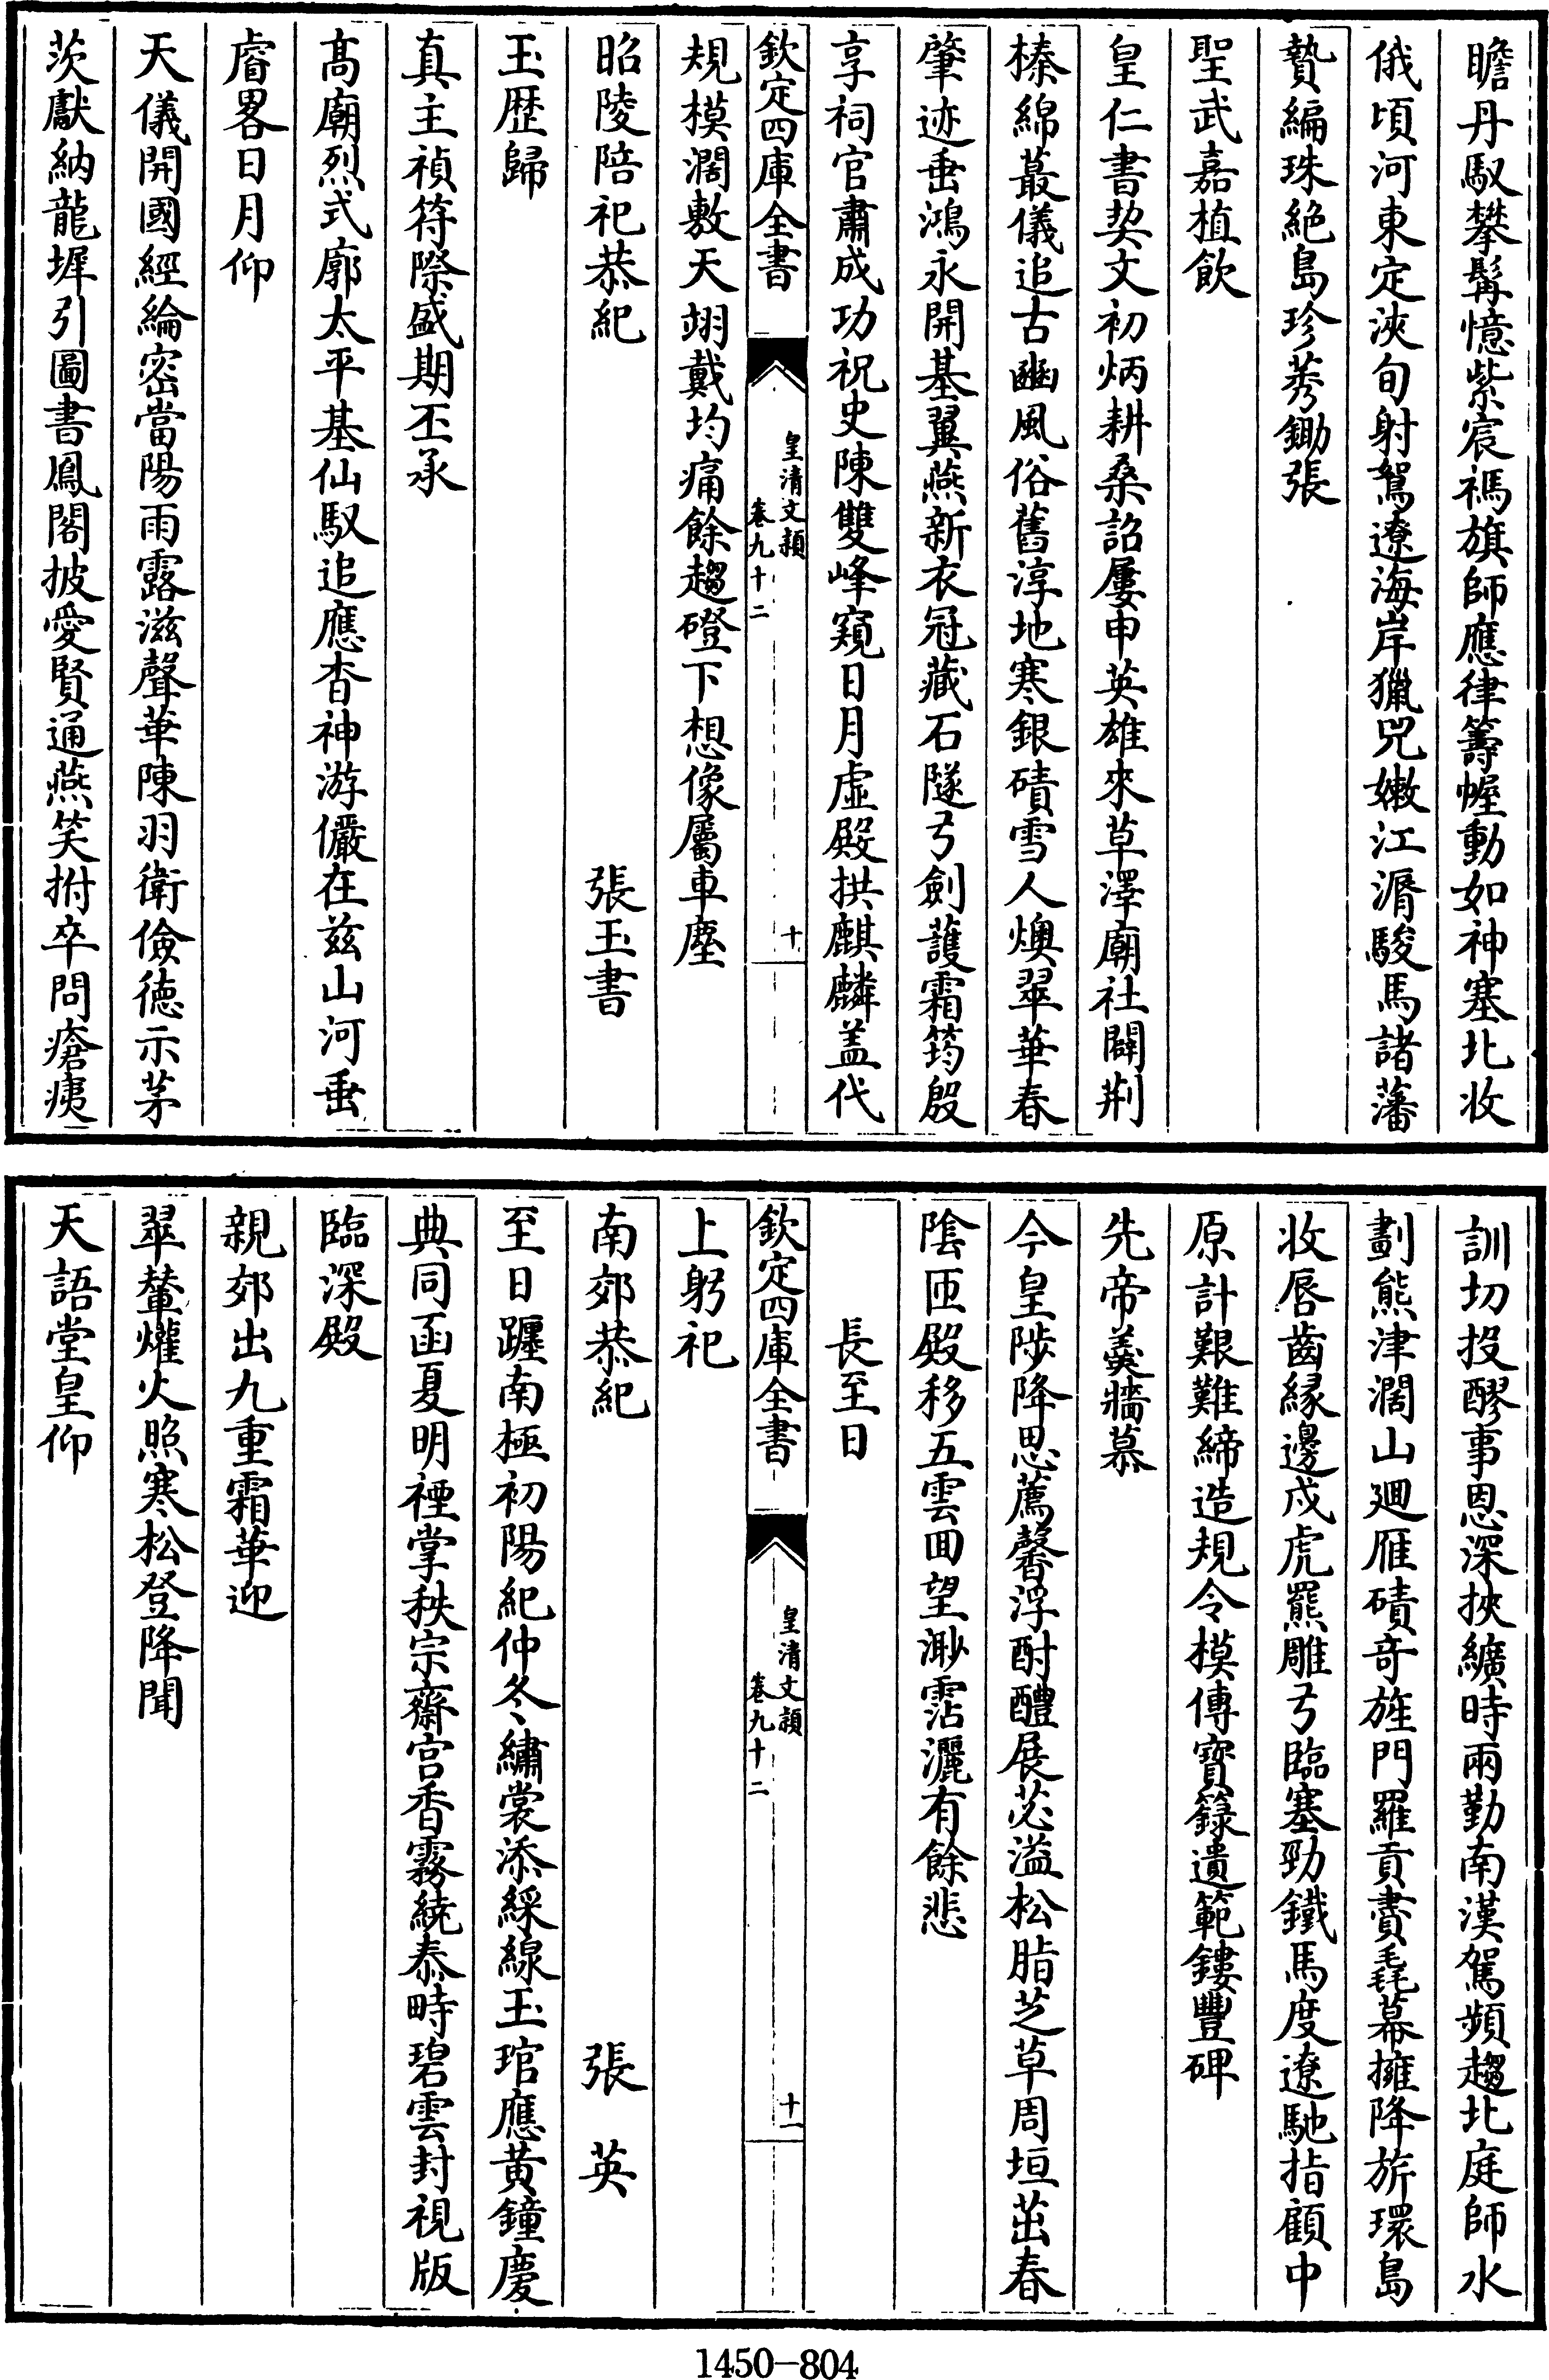 瞻丹馭攀髯憶紫宸禡旗師應律籌幄動如神塞北收
俄頃河東定浹旬射鴛遼海岸獵兕嫩江漘駿馬諸藩
贄編珠絶島珍莠鋤張
聖武嘉植飲
皇仁書契文初炳耕桑詔屢申英雄來草澤廟社闢荆
榛綿蕞儀追古豳風俗舊淳地寒銀磧雪人燠翠華春
肇迹垂鴻永開基翼燕新衣冠藏石隧弓劍䕶霜筠殷
享祠官肅成功祝史陳雙峰窺日月虛殿拱麒麟盖代
欽定四庫全書
皇清文頴
卷九十二
十
規模濶敷天翊戴均痛餘趨磴下想像屬車塵
昭陵陪祀恭紀　張玉書
玉歴歸
真主禎符際盛期丕承
髙廟烈式廓太平基仙馭追應杳神游儼在兹山河垂
睿畧日月仰
天儀開國經綸密當陽雨露滋聲華陳羽衛儉徳示茅
茨獻納龍墀引圖書鳳閣披愛賢通燕笑拊卒問瘡痍
訓切投醪事恩深挾纊時兩勤南漢駕頻趨北庭師水
劃熊津濶山迴雁磧奇旌門羅貢賮毳幕擁降旂環島
收唇齒縁邊戍虎羆雕弓臨塞勁鐵馬度遼馳指顧中
原計艱難締造規令模傳寳籙遺範鏤豐碑
先帝羹牆慕
今皇陟降思薦馨浮酎醴展苾溢松脂芝草周垣茁春
隂匝殿移五雲回望渺霑灑有餘悲
長至日
欽定四庫全書
皇清文頴
卷九十二
十一
上躬祀
南郊恭紀　張英
至日躔南極初陽紀仲冬繡裳添綵線玉琯應黄鐘慶
典同函夏明禋掌秩宗齋宫香霧繞泰畤碧雲封視版
臨深殿
親郊出九重霜華迎
翠輦爟火照寒松登降聞
天語堂皇仰
1450-804